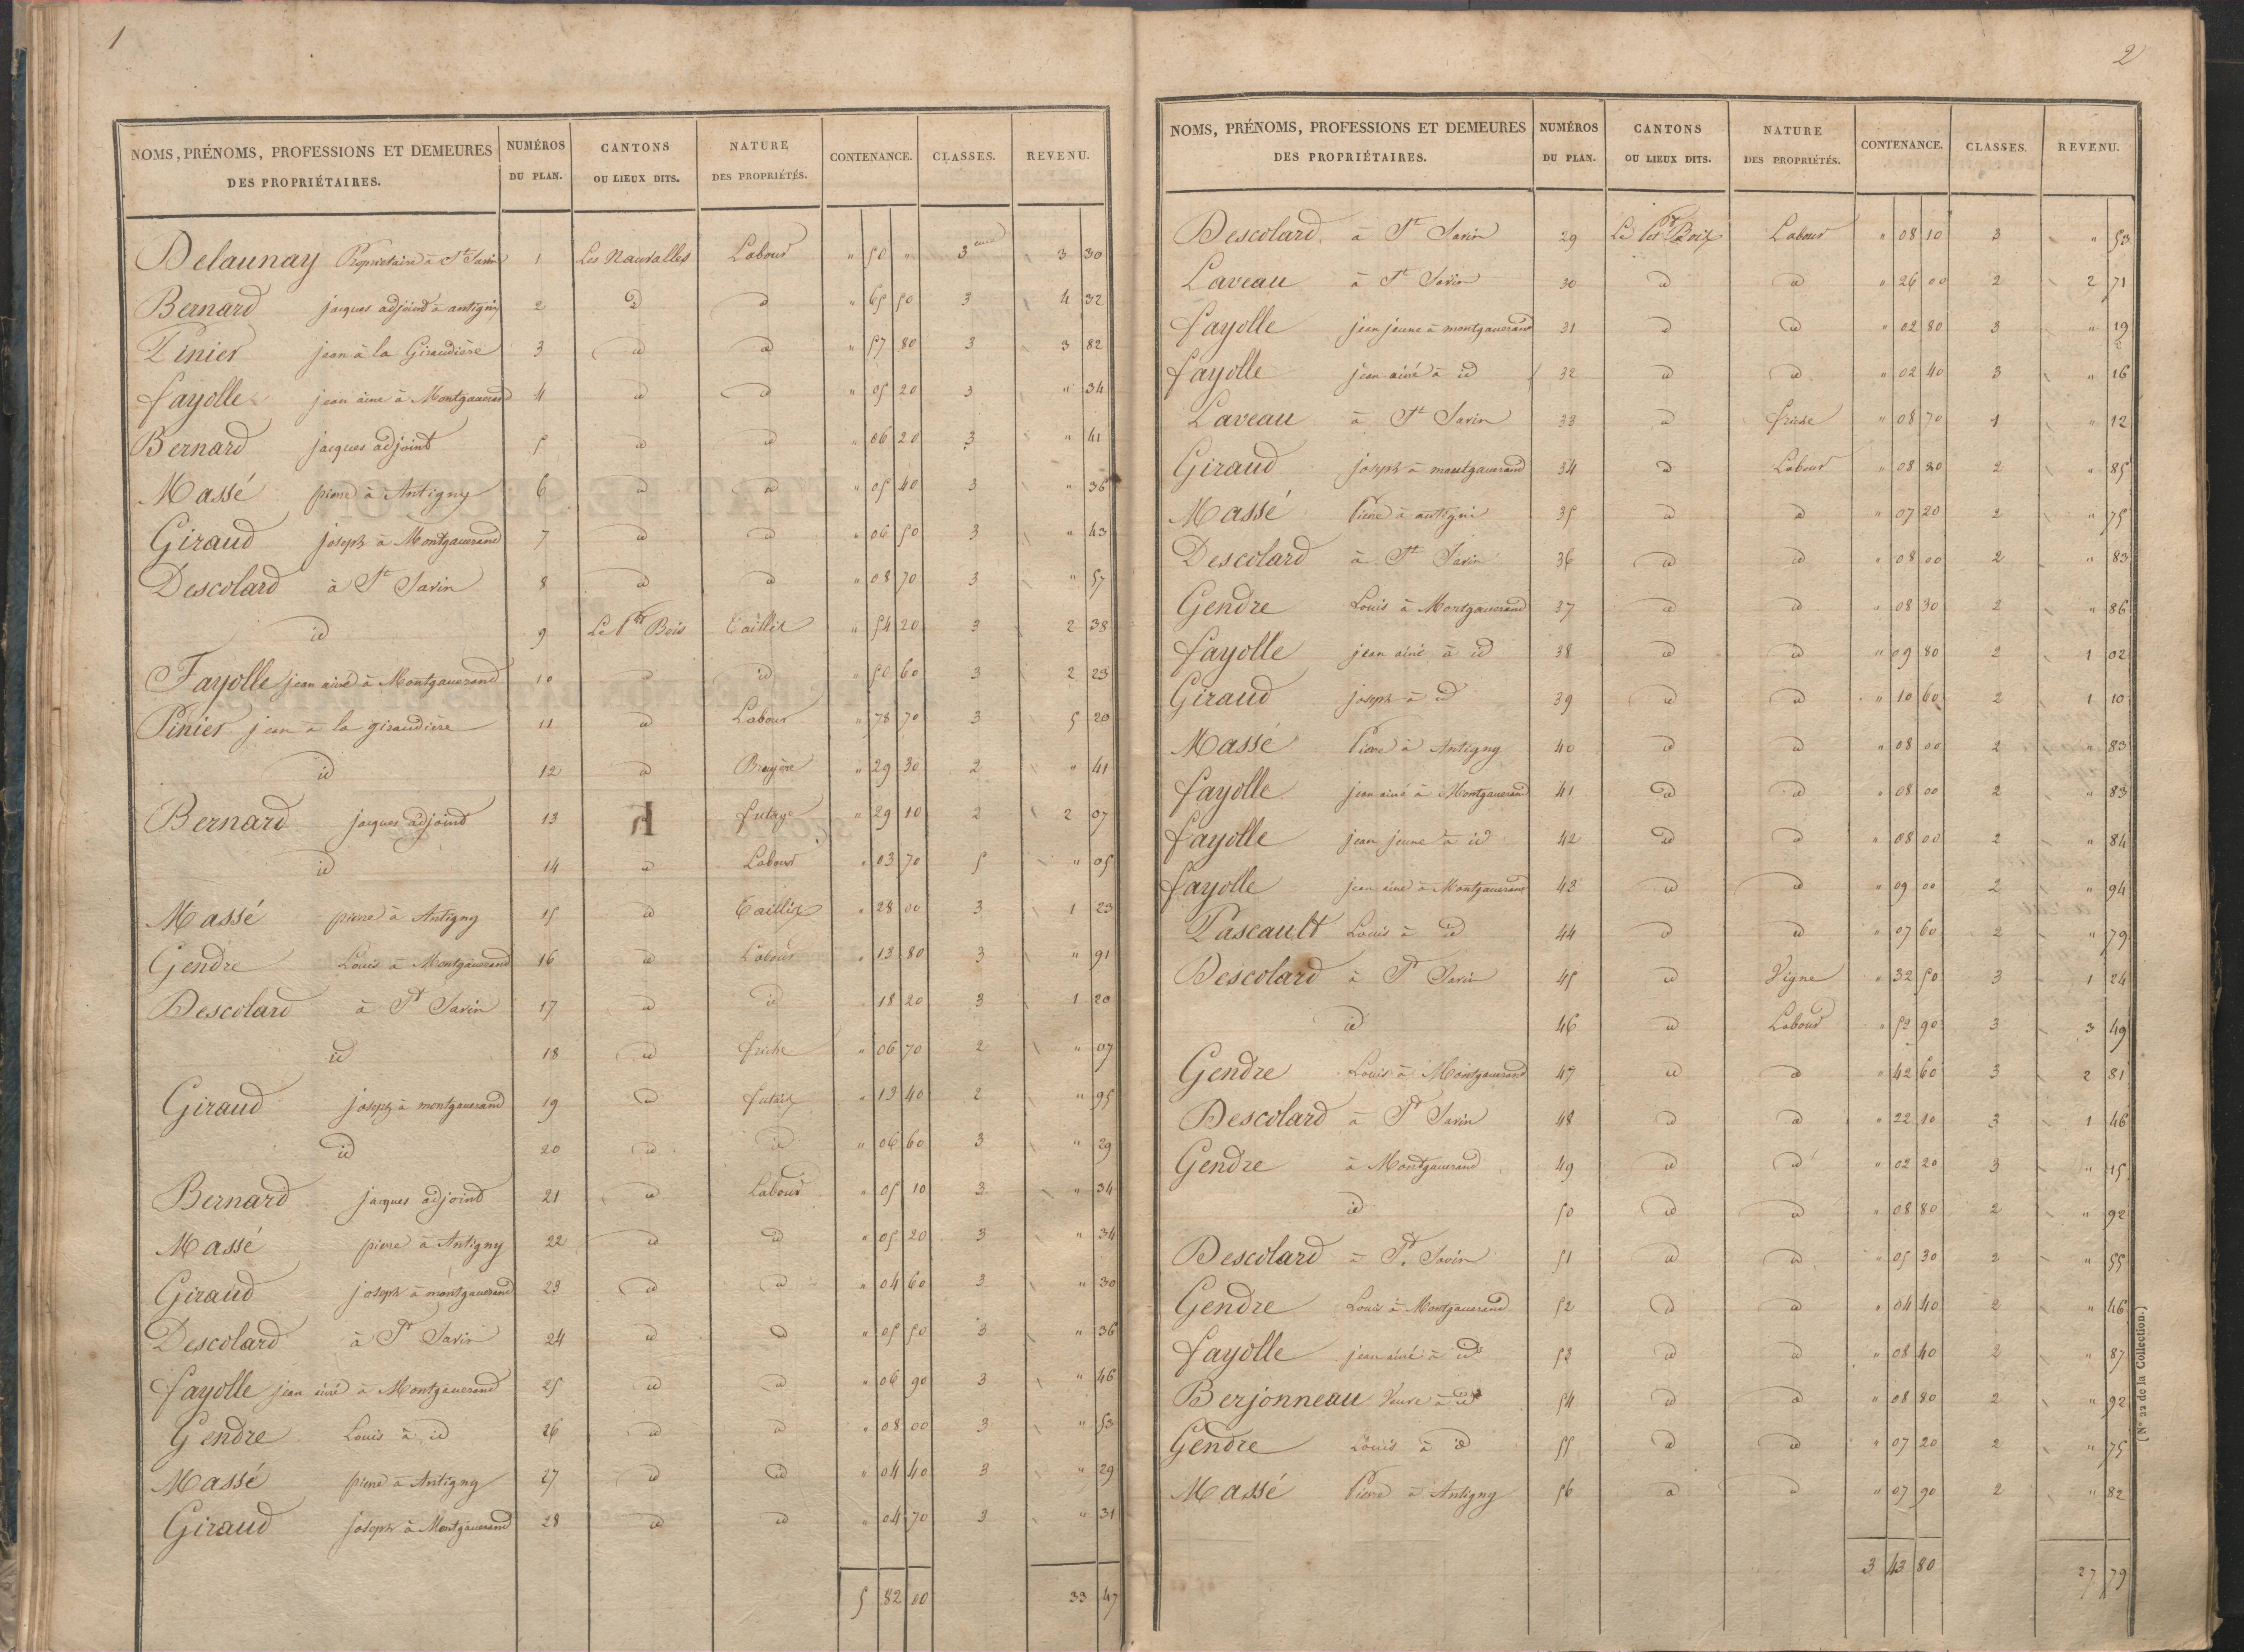 1
NOMS, PRÉNOMS, PROFESSIONS ET DEMEURES DES PROPRIÉTAIRES. NUMÉROS DU PLAN. CANTONS OU LIEUX DITS. NATURE DES PROPRIÉTÉS. CONTENANCE. CLASSES. REVENU.
Delaunay Propriétaire à St Savin 1 Les Nauralles Labour " 50 " 3eme 3 30
Bernard jacques adjoint à antigny 2 id id " 65 50 3 4 32
Pinier jean à la Giraudière 3 id id " 57 80 3 3 82
fayolle jean ainé à Montgauerand 4 id id " 05 20 3 " 34
Bernard jacques adjoint 5 id id " 06 20 3 " 41
Massé pierre à Antigny 6 id id " 05 40 3 " 36
Giraud joseph à Montgauerand 7 id id " 06 50 3 " 43
Descolard à St Savin 8 id id " 08 70 3 " 57
id 9 Le ptit Bois Taillis " 54 20 3 2 38
Fayolle jean ainé à Montgauerand 10 id id " 50 60 3 2 23
Pinier jean à la giraudière 11 id Labour " 78 70 3 5 20
id 12 id Bruyère " 29 30 2 " 41
Bernard jacques adjoint 13 id futaye " 29 10 2 2 07
id 14 id Labour " 03 70 5 " 05
Massé pierre à Antigny 15 id Taillis " 28 00 3 1 23
Gendre Louis à Montgauerand 16 id Labour " 13 80 3 " 91
Descolard à St Savin 17 id id 18 20 3 1 20
id 18 id friche " 06 70 2 " 07
Giraud joseph à montgauerand 19 id futaie " 13 40 2 " 95
id 20 id id " 06 60 3 " 29
Bernard jacques adjoint 21 id Labour " 05 10 3 " 34
Massé pierre à Antigny 22 id id " 05 20 3 " 34
Giraud joseph à montgauerand 23 id id " 04 60 3 " 30
Descolard à St Savin 24 id id " 05 50 3 " 36
fayolle jean ainé à Montgauerand 25 id id " 06 90 3 " 46
Gendre Louis à id 26 id id " 08 00 3 " 53
Massé pierre à Antigny 27 id id " 04 40 3 " 29
Giraud joseph à Montgauerand 28 id id " 04 70 3 " 31
5 82 00 33 47
2
NOMS, PRÉNOMS, PROFESSIONS ET DEMEURES DES PROPRIÉTAIRES. NUMÉROS DU PLAN. CANTONS OU LIEUX DITS. NATURE DES PROPRIÉTÉS. CONTENANCE. CLASSES. REVENU.
Descolard à St Savin 29 Le Petit Bois Labour " 08 10 3 " 53
Laveau à St Savin 30 id id " 26 00 2 2 71
fayolle jean jeune à montgauerand 31 id id " 02 80 3 " 19
fayolle jean ainé à id 32 id id " 02 40 3 " 16
Laveau à St Savin 33 id friche " 08 70 1 " 12
Giraud joseph à montgauerand 34 id Labour " 08 20 2 " 85
Massé Pierre à antigni 35 id id " 07 20 2 " 75
Descolard à St Savin 36 id id " 08 00 2 " 83
Gendre Louis à Montgauerand 37 id id " 08 30 2 " 86
fayolle jean ainé à id 38 id id " 09 80 2 1 02
Giraud joseph à id 39 id id " 10 60 2 1 10
Massé Pierre à Antigny 40 id id " 08 00 2 " 83
fayolle jean ainé à Montgauerand 41 id id " 08 00 2 " 83
fayolle jean jeune à id 42 id id " 08 00 2 " 84
fayolle jean ainé à Montgauerand 43 id id " 09 00 2 " 94
Pascault Louis à id 44 id id " 07 60 2 " 79
Descolard à St Savin 45 id Vigne " 32 50 3 1 24
id 46 id Labour " 52 90 3 3 49
Gendre Louis à Montgauerand 47 id id " 42 60 3 2 81
Descolard à St Savin 48 id id " 22 10 3 1 46
Gendre à Montgauerand 49 id id " 02 20 3 " 15
id 50 id id " 08 80 2 " 92
Descolard à St. Savin 51 id id " 05 30 2 " 55
Gendre Louis à Montgauerand 52 id id " 04 40 2 " 46
fayolle jean ainé à id 53 id id " 08 40 2 " 87
Berjonneau Veuve à id 54 id id " 08 80 2 " 92
Gendre Louis à id 55 id id " 07 20 2 " 75
Massé Pierre à Antigny 56 id id " 07 90 2 " 82
3 43 80 27 79
(N° 22 de la Collection.)